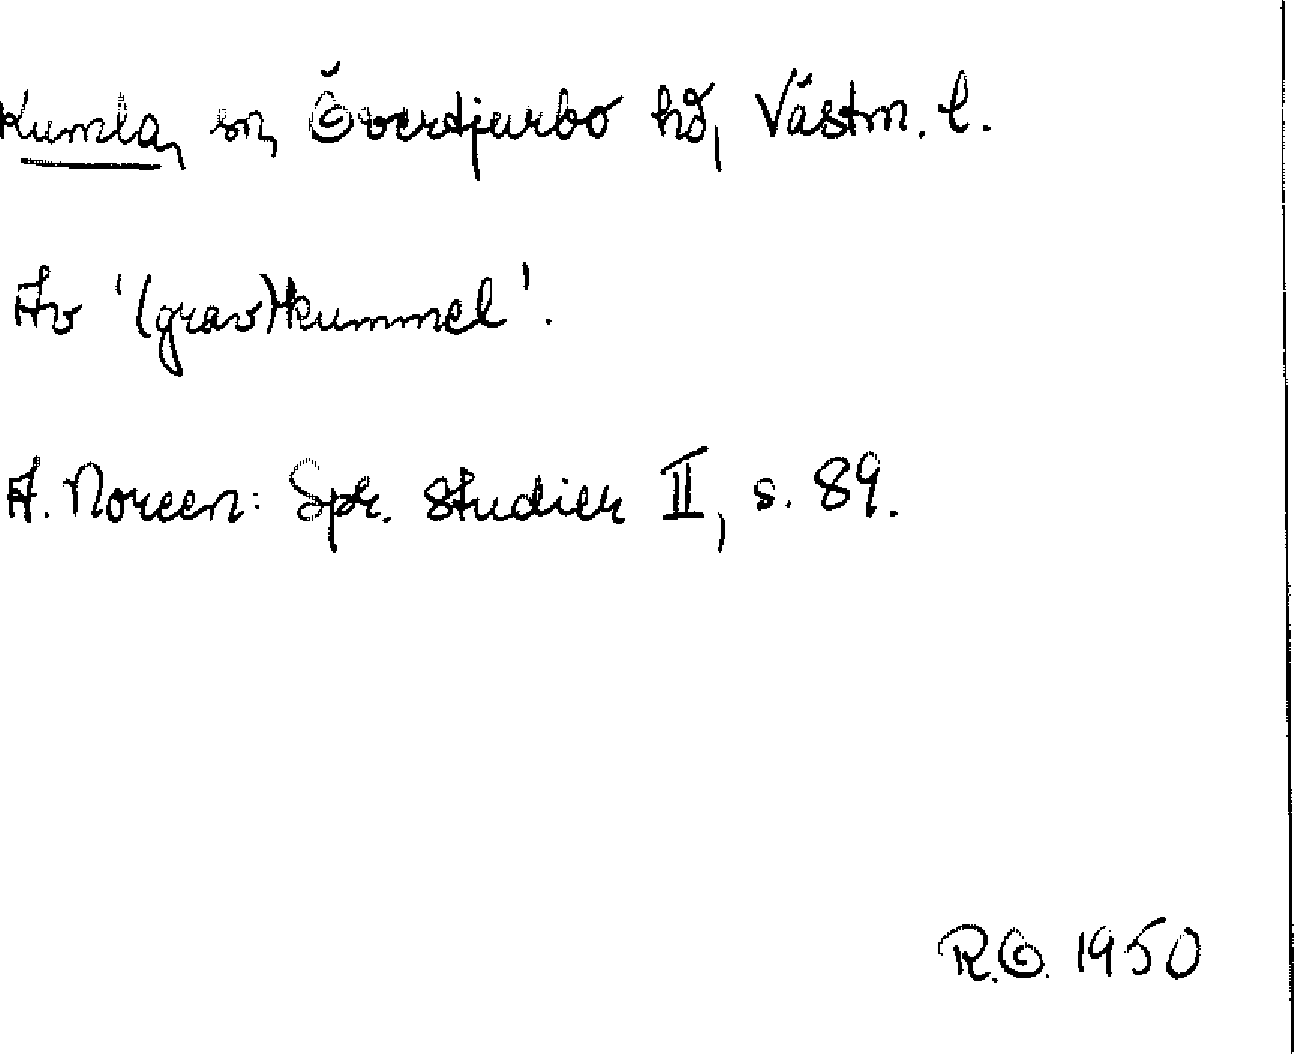 Kumla, sn, Övertjurbo hd, Västm. l.
Av '(grav)kummel'.
A. Noreen: Spr. studier II, s. 89.
R.O. 1950